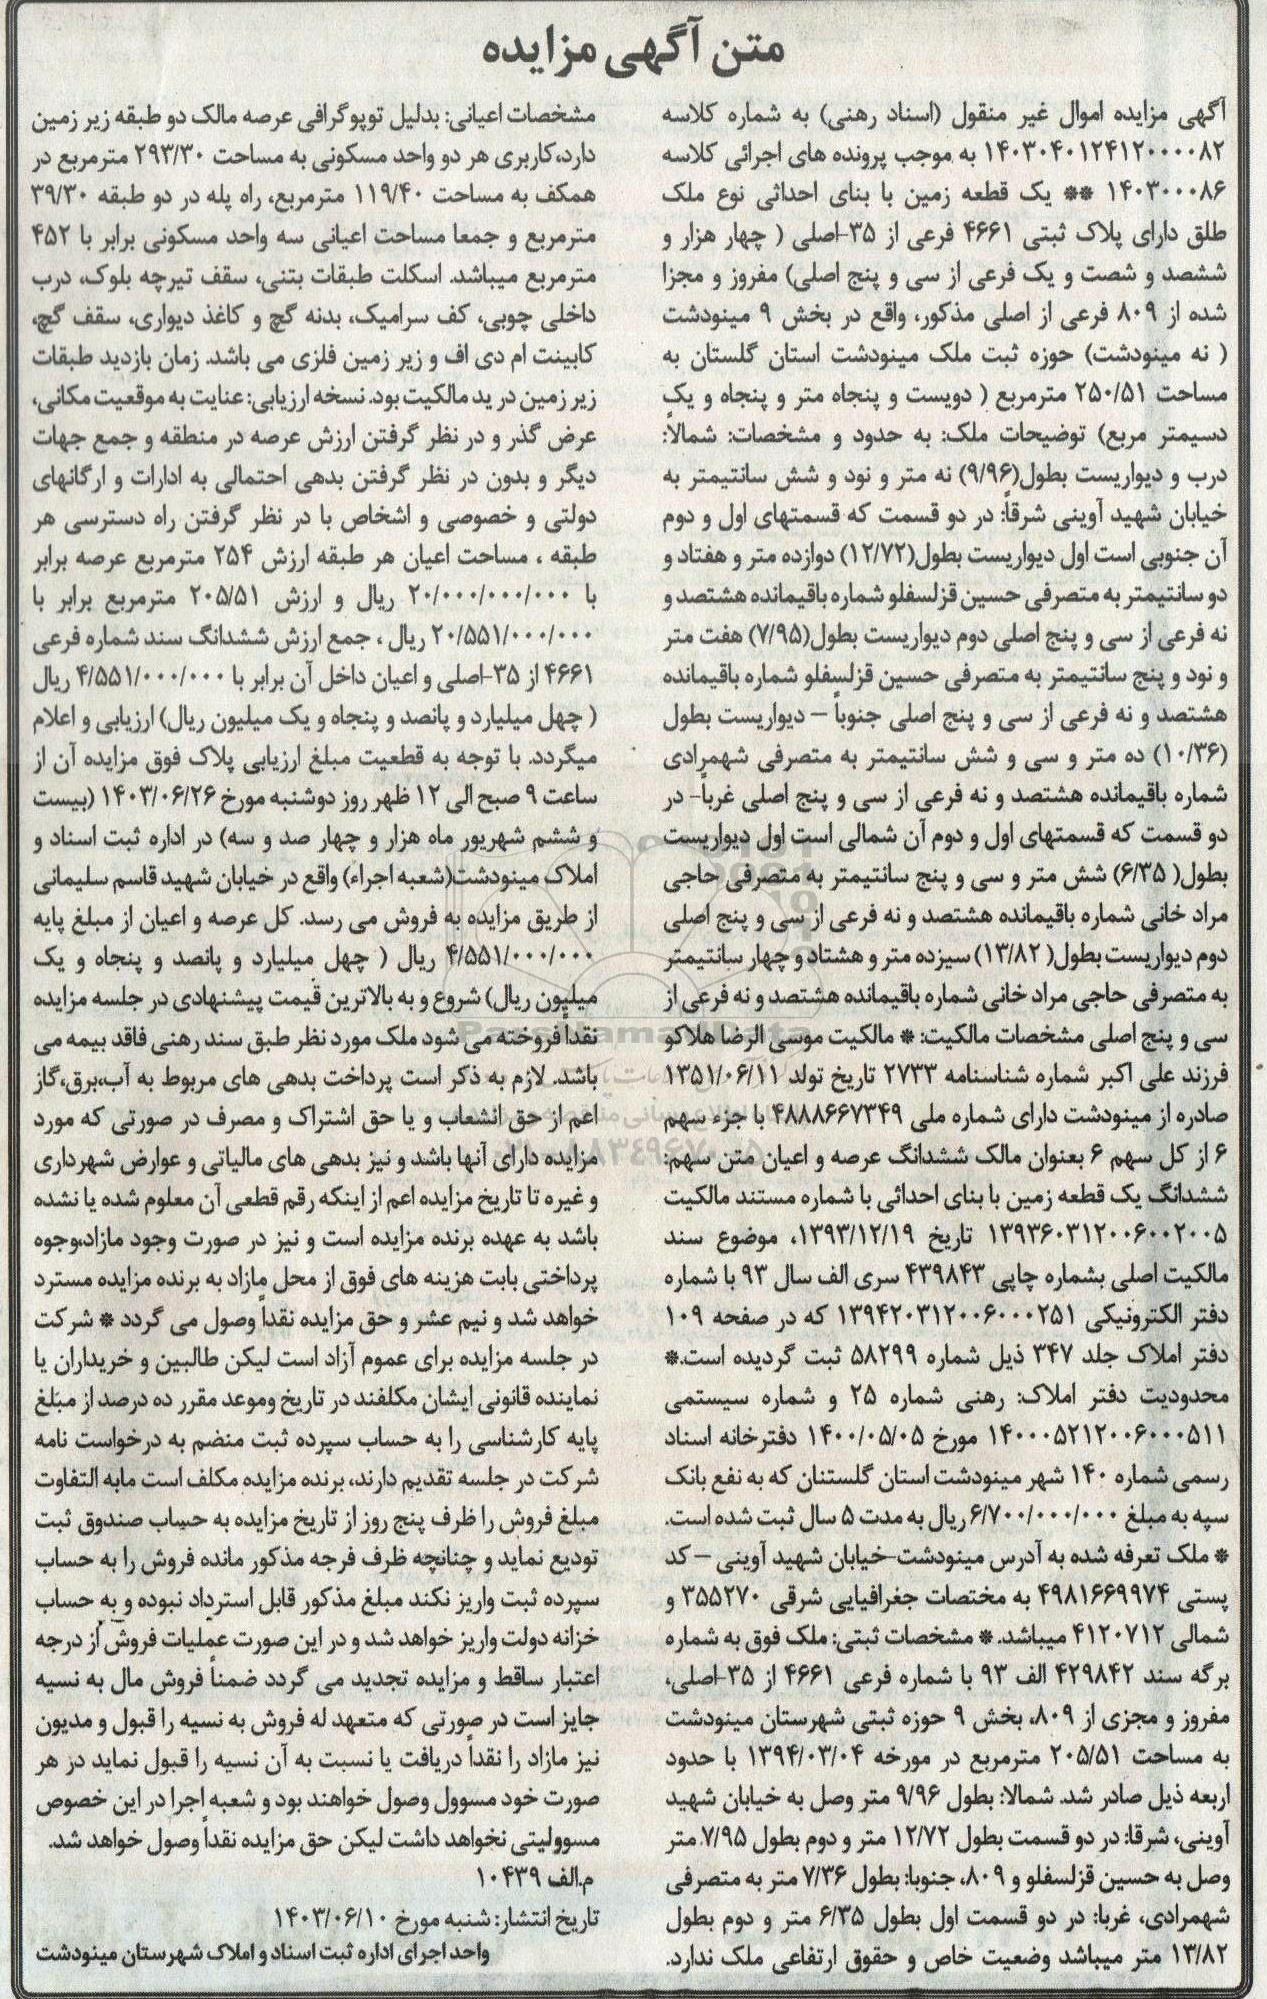 متن آگهی مزایده
آگهی مزایده اموال غیر منقول (اسناد رهنی) به شماره کلاسه
۱۴۰۳۰۴۰۱۲۴۱۲۰۰۰۰۸۲ به موجب پرونده های اجرائی کلاسه
۱۴۰۳۰۰۰۸۶ ** یک قطعه زمین با بنای احداثی نوع ملک
طلق دارای پلاک ثبتی ۴۶۶۱ فرعی از ۳۵-اصلی ( چهار هزار و
ششصد و شصت و یک فرعی از سی و پنج اصلی) مفروز و مجزا
شده از ۸۰۹ فرعی از اصلی مذکور، واقع در بخش ۹ مینودشت
( نه مینودشت) حوزه ثبت ملک مینودشت استان گلستان به
مساحت ۲۵۰/۵۱ مترمربع ( دویست و پنجاه متر و پنجاه و یک
دسیمتر مربع) توضیحات ملک: به حدود و مشخصات: شمالاً:
درب و دیواریست بطول(۹/۹۶) نه متر و نود و شش سانتیمتر به
خیابان شهید آوینی شرقاً: در دو قسمت که قسمتهای اول و دوم
آن جنوبی است اول دیواریست بطول(۱۲/۷۲) دوازده متر و هفتاد و
دو سانتیمتر به متصرفی حسین قزلسفلو شماره باقیمانده هشتصد و
نه فرعی از سی و پنج اصلی دوم دیواریست بطول(۷/۹۵) هفت متر
و نود و پنج سانتیمتر به متصرفی حسین قزلسفلو شماره باقیمانده
هشتصد و نه فرعی از سی و پنج اصلی جنوباً – دیواریست بطول
(۱۰/۳۶) ده متر و سی و شش سانتیمتر به متصرفی شهمرادی
شماره باقیمانده هشتصد و نه فرعی از سی و پنج اصلی غرباً- در
دو قسمت که قسمتهای اول و دوم آن شمالی است اول دیواریست
بطول( ۶/۳۵) شش متر و سی و پنج سانتیمتر به متصرفی حاجی
مراد خانی شماره باقیمانده هشتصد و نه فرعی از سی و پنج اصلی
دوم دیواریست بطول( ۱۳/۸۲) سیزده متر و هشتاد و چهار سانتیمتر
به متصرفی حاجی مراد خانی شماره باقیمانده هشتصد و نه فرعی از
سی و پنج اصلی مشخصات مالکیت: * مالکیت موسی الرضا هلاکو
فرزند علی اکبر شماره شناسنامه ۲۷۳۳ تاریخ تولد ۱۳۵۱/۰۶/۱۱
صادره از مینودشت دارای شماره ملی ۴۸۸۸۶۶۷۳۴۹ با جزء سهم
۶ از کل سهم ۶ بعنوان مالک ششدانگ عرصه و اعیان متن سهم:
ششدانگ یک قطعه زمین با بنای احداثی با شماره مستند مالکیت
۱۳۹۳۶۰۳۱۲۰۰۶۰۰۲۰۰۵ تاریخ ۱۳۹۳/۱۲/۱۹، موضوع سند
مالکیت اصلی بشماره چاپی ۴۳۹۸۴۳ سری الف سال ۹۳ با شماره
دفتر الکترونیکی ۱۳۹۴۲۰۳۱۲۰۰۶۰۰۰۲۵۱ که در صفحه ۱۰۹
دفتر املاک جلد ۳۴۷ ذیل شماره ۵۸۲۹۹ ثبت گردیده است.*
محدودیت دفتر املاک: رهنی شماره ۲۵ و شماره سیستمی
۱۴۰۰۰۵۲۱۲۰۰۶۰۰۰۵۱۱ مورخ ۱۴۰۰/۰۵/۰۵ دفترخانه اسناد
رسمی شماره ۱۴۰ شهر مینودشت استان گلستنان که به نفع بانک
سپه به مبلغ ۶/۷۰۰/۰۰۰/۰۰۰ ریال به مدت ۵ سال ثبت شده است.
* ملک تعرفه شده به آدرس مینودشت-خیابان شهید آوینی – کد
پستی ۴۹۸۱۶۶۹۹۷۴ به مختصات جغرافیایی شرقی ۳۵۵۲۷۰ و
شمالی ۴۱۲۰۷۱۲ میباشد. * مشخصات ثبتی: ملک فوق به شماره
برگه سند ۴۲۹۸۴۲ الف ۹۳ با شماره فرعی ۴۶۶۱ از ۳۵-اصلی،
مفروز و مجزی از ۸۰۹، بخش ۹ حوزه ثبتی شهرستان مینودشت
به مساحت ۲۰۵/۵۱ مترمربع در مورخه ۱۳۹۴/۰۳/۰۴ با حدود
اربعه ذیل صادر شد. شمالا: بطول ۹/۹۶ متر وصل به خیابان شهید
آوینی، شرقا: در دو قسمت بطول ۱۲/۷۲ متر و دوم بطول ۷/۹۵. متر
وصل به حسین قزلسفلو و ۸۰۹، جنوبا: بطول ۷/۳۶ متر به متصرفی
شهمرادی، غربا: در دو قسمت اول بطول ۶/۳۵ متر و دوم بطول
۱۳/۸۲ متر میباشد وضعیت خاص و حقوق ارتفاعی ملک ندارد.
مشخصات اعیانی: بدلیل توپوگرافی عرصه مالک دو طبقه زیر زمین
دارد،کاربری هر دو واحد مسکونی به مساحت ۲۹۳/۳۰ مترمربع در
همکف به مساحت ۱۱۹/۴۰ مترمربع، راه پله در دو طبقه ۳۹/۳۰
مترمربع و جمعا مساحت اعیانی سه واحد مسکونی برابر با ۴۵۲
مترمربع میباشد. اسکلت طبقات بتنی، سقف تیرچه بلوک، درب
داخلی چوبی، کف سرامیک، بدنه گچ و کاغذ دیواری، سقف گچ،
کابینت ام دی اف و زیر زمین فلزی می باشد. زمان بازدید طبقات
زیر زمین در ید مالکیت بود. نسخه ارزیابی: عنایت به موقعیت مکانی،
عرض گذر و در نظر گرفتن ارزش عرصه در منطقه و جمع جهات
دیگر و بدون در نظر گرفتن بدهی احتمالی به ادارات و ارگانهای
دولتی و خصوصی و اشخاص با در نظر گرفتن راه دسترسی هر
طبقه ، مساحت اعیان هر طبقه ارزش ۲۵۴ مترمربع عرصه برابر
با ۲۰/۰۰۰/۰۰۰/۰۰۰ ریال و ارزش ۲۰۵/۵۱ مترمربع برابر با
۲۰/۵۵۱/۰۰۰/۰۰۰ ریال ، جمع ارزش ششدانگ سند شماره فرعی
۴۶۶۱ از ۳۵-اصلی و اعیان داخل آن برابر با ۴/۵۵۱/۰۰۰/۰۰۰ ریال
( چهل میلیارد و پانصد و پنجاه و یک میلیون ریال) ارزیابی و اعلام
میگردد. با توجه به قطعیت مبلغ ارزیابی پلاک فوق مزایده آن از
ساعت ۹ صبح الی ۱۲ ظهر روز دوشنبه مورخ ۱۴۰۳/۰۶/۲۶ (بیست
و ششم شهریور ماه هزار و چهار صد و سه) در اداره ثبت اسناد و
املاک مینودشت(شعبه اجراء) واقع در خیابان شهید قاسم سلیمانی
از طریق مزایده به فروش می رسد. کل عرصه و اعیان از مبلغ پایه
۴/۵۵۱/۰۰۰/۰۰۰ ریال ( چهل میلیارد و پانصد و پنجاه و یک
میلیون ریال) شروع و به بالاترین قیمت پیشنهادی در جلسه مزایده
نقداً فروخته می شود ملک مورد نظر طبق سند رهنی فاقد بیمه می
باشد. لازم به ذکر است پرداخت بدهی های مربوط به آب،برق،گاز
اعم از حق انشعاب و یا حق اشتراک و مصرف در صورتی که مورد
مزایده دارای آنها باشد و نیز بدهی های مالیاتی و عوارض شهرداری
و غیره تا تاریخ مزایده اعم از اینکه رقم قطعی آن معلوم شده یا نشده
باشد به عهده برنده مزایده است و نیز در صورت وجود مازاد،وجوه
پرداختی بابت هزینه های فوق از محل مازاد به برنده مزایده مسترد
خواهد شد و نیم عشر و حق مزایده نقداً وصول می گردد * شرکت
در جلسه مزایده برای عموم آزاد است لیکن طالبین و خریداران یا
نماینده قانونی ایشان مکلفند در تاریخ وموعد مقرر ده درصد از مبلغ
پایه کارشناسی را به حساب سپرده ثبت منضم به درخواست نامه
شرکت در جلسه تقدیم دارند، برنده مزایده مکلف است مابه التفاوت
مبلغ فروش را ظرف پنج روز از تاریخ مزایده به حساب صندوق ثبت
تودیع نماید و چنانچه ظرف فرجه مذکور مانده فروش را به حساب
سپرده ثبت واریز نکند مبلغ مذکور قابل استرداد نبوده و به حساب
خزانه دولت واریز خواهد شد و در این صورت عملیات فروش از درجه
اعتبار ساقط و مزایده تجدید می گردد ضمناً فروش مال به نسیه
جایز است در صورتی که متعهد له فروش به نسیه را قبول و مدیون
نیز مازاد را نقداً دریافت یا نسبت به آن نسیه را قبول نماید در هر
صورت خود مسوول وصول خواهند بود و شعبه اجرا در این خصوص
مسوولیتی نخواهد داشت لیکن حق مزایده نقداً وصول خواهد شد.
م.الف ۱۰۴۳۹
تاریخ انتشار: شنبه مورخ ۱۴۰۳/۰۶/۱۰
واحد اجرای اداره ثبت اسناد و املاک شهرستان مینودشت